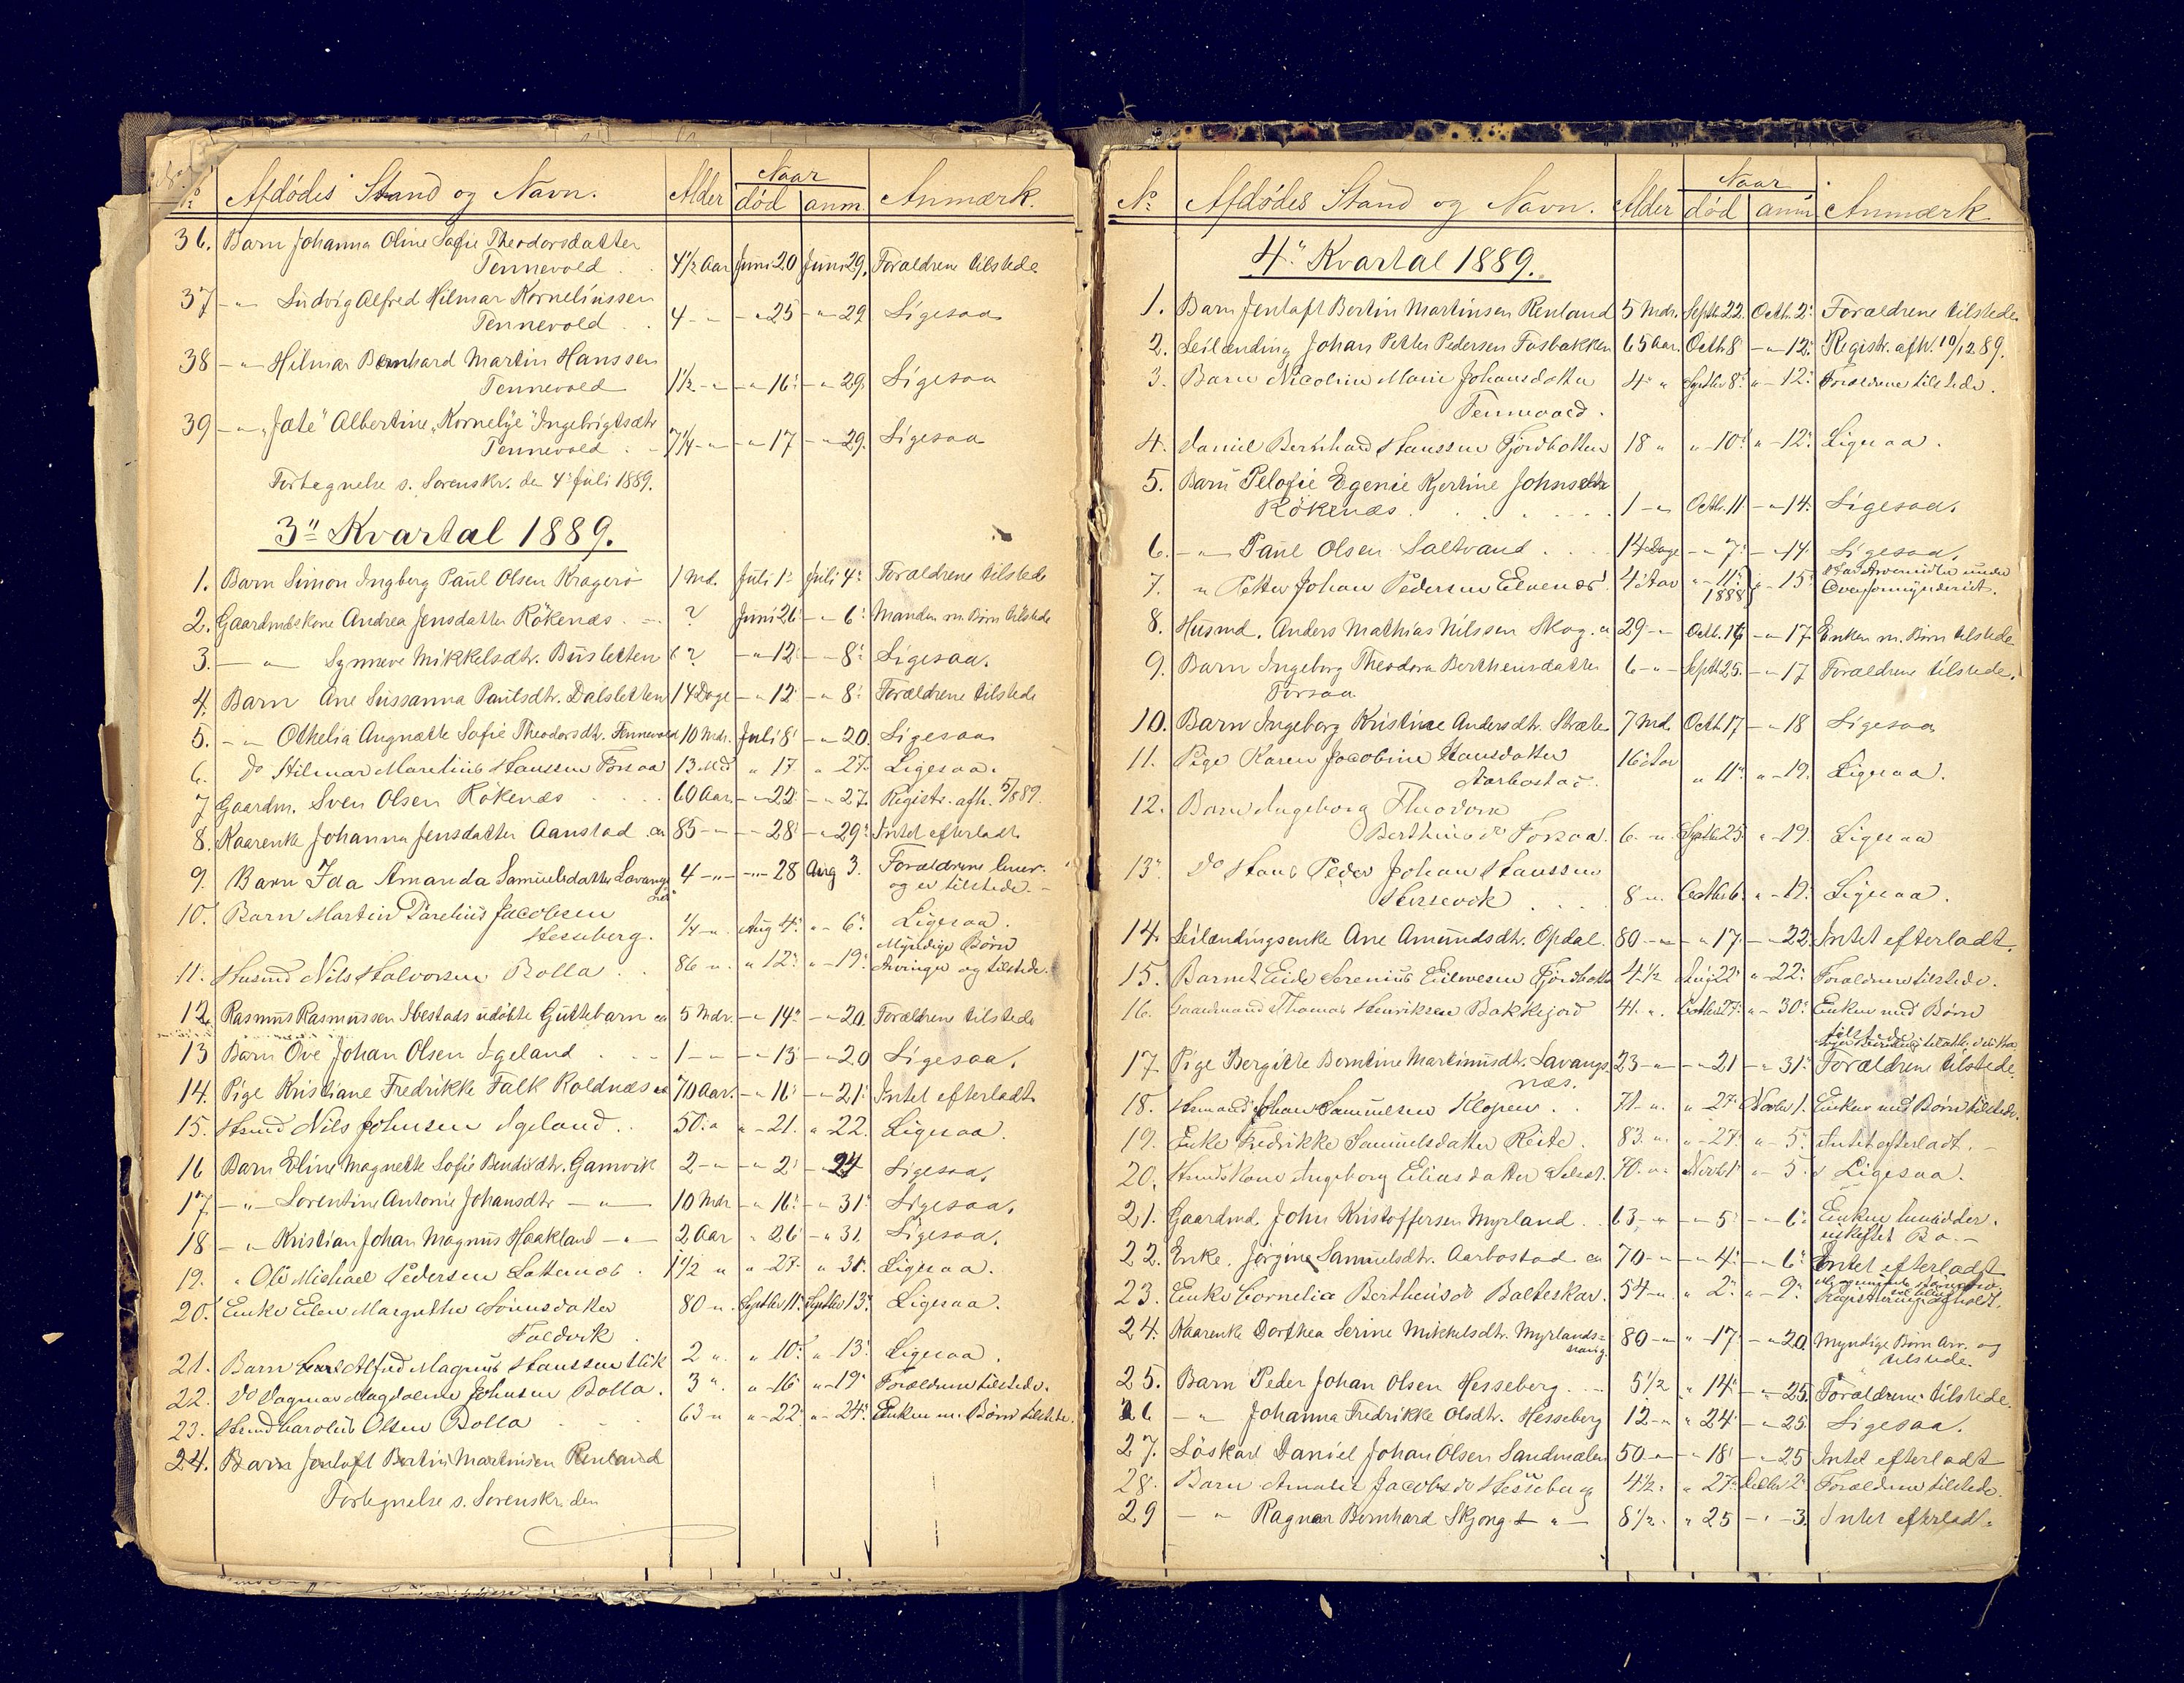 Afdødes Stand og Navn. Alder Naar død anm. Anmærk.
36. Barn Johanna Oline Sofie Theodorsdatter
Tennevold . . 4 1/2 Aar Juni 20 Juni 29. Forældrene tilstede
37 -"- Ludvig Alfred Hilmar Kornelüssen
Tennevold . . 4 -"- -"- 25 -"- 29 Ligesaa
38 -"- Hilmar Bernhard Martin Hanssen
Tennevold 1 1/2 -"- -"- 16. -"- 29. Ligesaa
39 -"- "Jæte" Albertine "Kornelye" Ingebrigtsdtr
Tennevold . 7 1/4 -"- -"- 17 -"- 29. Ligesaa
Fortegnelse s. Sorenskr. den 4. Juli 1889.
3" Kvartal 1889.
1. Barn Simon Ingberg Paul Olsen Kragerø 1 Md. Juli 1. Juli 4. Forældrene tilstede
2. Gaardmdskone Andrea Jensdatter Rökenæs . - ? Juni 26 -"- 6. Manden m. Børn tilstede
3. -"- Synneve Mikkelsdtr. Busletten 6? -"- 12 -"- 8. Ligesaa.
4. Barn Ane Sussanna Paulsdtr. Dalsletten 14 Dage -"- 12 -"- 8. Forældrene tilstede
5. -"- Othelia Angnætte Sofie Theodorsdtr. Tennevold 10 Mdr. Juli 8. -"- 20. Ligesaa
6. Do Hilmar Marelius Hanssen Forsaa 13 Md " 17 " 27. Ligesaa.
7 Gaardm. Sven Olsen Rökenæs . . . 60 Aar. -"- 22. -"- 27. Registr. afh. 5/8 89.
8. Kaarenke Johanna Jensdatter Aanstad ca 85 -"- -"- 28. -"- 29. Intet efterladt
9. Barn Ida Amanda Samuelsdatter Lavangs 4 -"- -"- 28 Aug 3. Forældrene lever
næs og er tilstede. -
10. Barn Martin Parelius Jacobsen
Hesseberg. 1/4 -"- Aug 4. "- 6. Ligesaa.
11. Husmd Nils Halvorsen Rolla . . 86 " " 12. "- 19. Myndige Børn
Arvinger og tilstede.
12. Rasmus Rasmussen Ibestads udøbte Guttebarn ca 5 Mdr. -"- 14. -"- 20. Forældrene tilstede
13 Barn Ove Johan Olsen Igeland . . 1 -"- -"- 13. -"- 20 Ligesaa.
14. Pige Kristiane Fredrikke Falk Roldnæs ca 70 Aar. -"- 16. -"- 21. Intet efterladt
15. Husmd Nils Johnsen Igeland . . 50. " "- 21. " 22. Ligesaa.
16 Barn Eline Magnette Sofie Bendixdtr. Gamvik 2 -"- -"- 2. -"- 24 Ligesaa.
17 -"- Sorentine Antonie Johansdtr -"- 10 Mdr -"- 16. -"- 31. Ligesaa.
18 -"- Kristian Johan Magnus Haakland -"- 2 Aar " 26 -"- 31. Ligesaa.
19. " Ole Michael Pedersen 1 1/2 " "- 27. " 31. Ligesaa.
20. Enke Elen Margrethe Sörensdatter 80 " Septbr 11. Septbr 13. Ligesaa.
Foldvik .
21. Barn Carl Alfred Magnus Hanssen 2 " " 10. " 13. Ligesaa.
22. Do Dagmar Magdalene Johnsen Rolla. 3 " "- 16 "- 19. Forældrene tilstede.
23. Husmd Carolus Olsen Rolla . . . 63 " "- 22. "- 24. Enken m. Børn tilstede.
24. Barn Jentoft Bertin Martinsen Renland
Fortegnelse s. Sorenskr. den
No. Afdødes Stand og Navn. Alder Naar død anm Anmærk.
4" Kvartal 1889.
1. Barn Jentoft Bertin Martinsen Renland 5 Mdr. Septb 22. Octb. 2. Forældrene tilstede
2. Leilænding Johan Petter Pedersen Fosbakken 65 Aar. Octb 8 -"- 12. Registr. afh. 10/12 89.
3. Barn Nicoline Marie Johansdatter 4 " Septbr 8. "- 12. Forældrene tilstede.
Tennevold.
4. Daniel Bernhard Hanssen Fjordbotten 18 " "- 10. "- 12. Ligesaa.
5. Barn Pelofie Egenie Kjerstine Johnsdtr
Rökenæs . . . . . 1 -"- Octb. 11. -"- 14. Ligesaa.
6. -"- Paul Olsen Saltvand . . . 14 Dage -"- 7. -"- 14 Ligesaa.
7. " Petter Johan Pedersen Elvenæs 4 Aar "- 11. 1888 "- 15. Har Arvemidler under
Overformynderiet.
8. Husmd. Anders Mathias Nilssen Skog. ca 29 -"- Octb. 16 -"- 17. Enken m. Børn tilstede
9. Barn Ingeborg Theodora Berthensdatter 6 -"- Septb 25. -"- 17 Forældrene tilstede.
Forsaa
10. Barn Ingeborg Kristine Andersdtr. Stræte 7 Md. Octb 17 -"- 18 Ligesaa
11. Pige Karen Jacobine Hansdatter 16 Aar
Aarbostad. " 11. "- 19. Ligesaa.
12. Barn Ingeborg Theodora
Berthinsdr Forsaa. 6 " Septbr 25 "- 19. Ligesaa
13. Do Hans Peder Johan Hanssen
8 " Octbr 6. "- 19. Ligesaa.
14. Leilændingsenke Ane Amundsdtr. Opdal. 80 -"- -"- 17. -"- 22. Intet efterladt.
15. Barnet Eide Serenius Fjordbotten 4 1/2 Aug 22. "- 22. Forældrene tilstede.
16. Gaardmand Thomas Henriksen Bakkejord 41. " Octbr 27. "- 30. Enken med Børn
tilstede.
17. Pige Bergitte Berntine Martinusdtr. Lavangs 23 -"- -"- 21 -"- 31. Forældrene tilstede.
næs.
18. Husmand Johan Samuelsen Klopen . . 71 " " 27. Novbr 1. Enken med Børn tilstede.
19. Enke Fredrikke Samuelsdatter Reite. 83 " "- 27. "- 5. Intet efterladt. -
20. Husmdskone Ingeborg Eliasdatter Selset. 70 " Novb 1. "- 5. Ligesaa.
21. Gaardmd. John Kristoffersen Myrland . . 63 -"- -"- 5. -"- 6. Enken hensidder i
uskiftet Bo. -
22. Enke, Jørgine Samuelsdtr. Aarbostad ca 70 -"- -"- 4. -"- 6. Intet efterladt
23. Enke Cornelia Berthensdr Balteskar. 54 " " 2. "- 9.
Registrering afholdt.
24. Kaarenke Dorthea Serine Mikkelsdtr. Myrlands= 80 -"- "- 17. -"- 20. Myndige Børn Arv. og
tilstede.
25. Barn Peder Johan Olsen Hesseberg . . 5 1/2 " 14. -"- 25. Forældrene tilstede.
26 -"- Johanna Fredrikke Olsdtr. Hesseberg 12 -"- " 24. -"- 25. Ligesaa.
27. Löskarl Daniel Johan Olsen Sandmælen 50 -"- -"- 18. -"- 25 Intet efterladt
28. Barn Amalie Jacobsdr Hesseberg 4 1/2 " " 27. Decbr 2. Forældrene tilstede.
29 -"- Ragnar Bernhard Skjong -"- 8 1/2 " " 25 -"- 3. Intet efterladt.